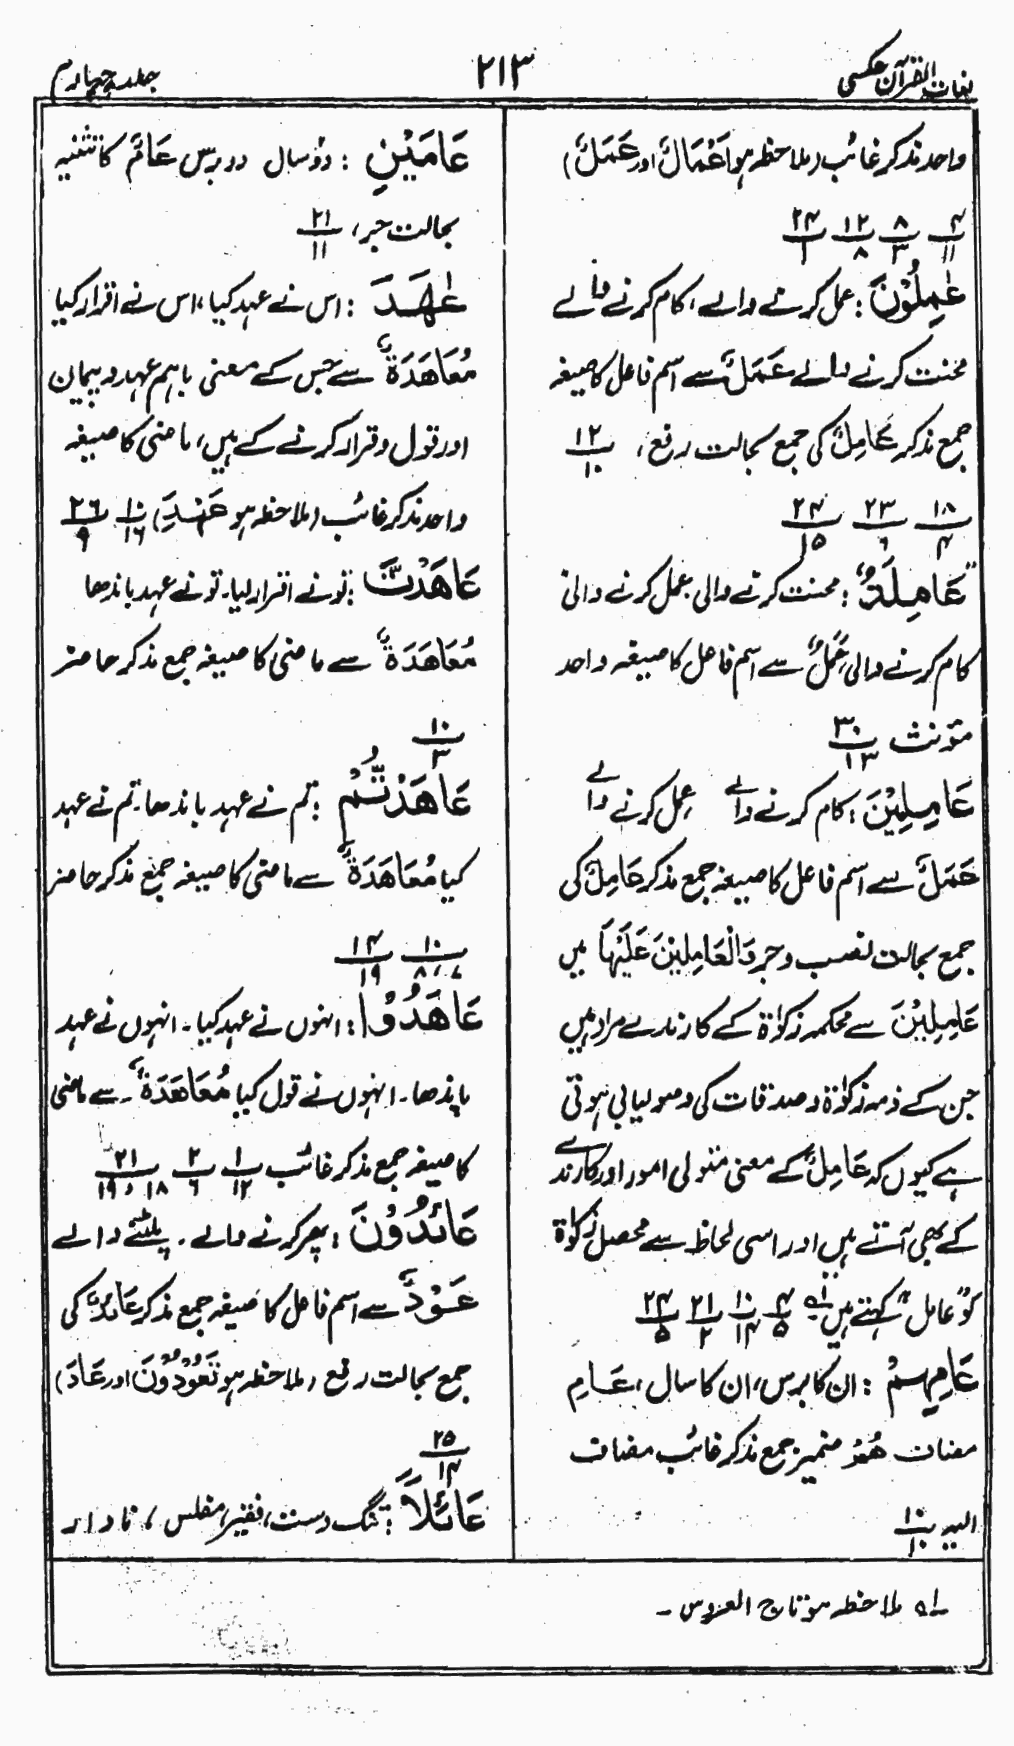 لغات القرآن عکسی
۲۱۳
جلد چہارم
واحد مذکر غائب (ملاحظہ ہو اَعْمَالٌ اور عَمَلٌ)
۴/۱۱ ۸/۳ ۱۲/۸ ۲۴/۱
عٰمِلُوْنَ : عمل کرنے والے، کام کرنے والے
محنت کرنے والے عَمَلٌ سے اسم فاعل کا صیغہ
جمع مذکر عَامِلٌ کی جمع بحالت رفع، ۱۲/۱۰
۱۸/۴ ۲۳/۶ ۲۴/۱۵
عَامِلَةٌ : محنت کرنے والی عمل کرنے والی
کام کرنے والی عَمَلٌ سے اسم فاعل کا صیغہ واحد
مؤنث ۳۰/۱۳
عَامِلِیْنَ : کام کرنے والے عمل کرنے والے
عَمَلٌ سے اسم فاعل کا صیغہ جمع مذکر عَامِلٌ کی
جمع بحالت نصب و جر وَالْعَامِلِیْنَ عَلَیْهَا میں
عَامِلِیْنَ سے محکمہ زکوٰۃ کے کارندے مراد ہیں
جن کے ذمہ زکوٰۃ و صدقات کی وصولیابی ہوتی
ہے کیوں کہ عَامِلٌ کے معنی متولی امور اور کارندے
کے بھی آتے ہیں اور اسی لحاظ سے محصل زکوٰۃ
کو "عامل" کہتے ہیں لہ ۴/۵ ۱۰/۱۴ ۲۱/۲ ۲۴/۵
عَامِهِمْ : ان کا برس، ان کا سال، عَامِ
مضاف هُمْ ضمیر جمع مذکر غائب مضاف
الیہ ۱۰/۱۰
عَامَیْنِ : دو سال دو برس عَامٌ کا تثنیہ
بحالت جر، ۲۱/۱۱
عٰهَدَ : اس نے عہد کیا، اس نے اقرار کیا
مُعَاهَدَةٌ سے جس کے معنی باہم عہد و پیمان
اور قول و قرار کرنے کے ہیں، ماضی کا صیغہ
واحد مذکر غائب (ملاحظہ ہو عَهِدَ) ۱۰/۱۶ ۲۶/۹
عَاهَدْتَّ : تو نے اقرار لیا۔ تو نے عہد باندھا
مُعَاهَدَةٌ سے ماضی کا صیغہ جمع مذکر حاضر
۱۰/۳
عَاهَدْتُّمْ : تم نے عہد باندھا۔ تم نے عہد
کیا مُعَاهَدَةٌ سے ماضی کا صیغہ جمع مذکر حاضر
۱۰/۷،۸ ۱۴/۱۹
عَاهَدُوْا : انہوں نے عہد کیا۔ انہوں نے عہد
باندھا۔ انہوں نے قول کیا مُعَاهَدَةٌ۔ سے ماضی
کا صیغہ جمع مذکر غائب ۱/۱۲ ۲/۶ ۲۱/۱۸،۱۹
عَائِدُوْنَ : پھر کرنے والے۔ پلٹنے والے
عَوْدٌ سے اسم فاعل کا صیغہ جمع مذکر عَائِدٌ کی
جمع بحالت رفع (ملاحظہ ہو تَعُوْدُوْنَ اور عَادَ)
۲۵/۱۴
عَائِلاً : تنگ دست، فقیر، مفلس، نادار
لہ ملاحظہ ہو تاج العروس۔